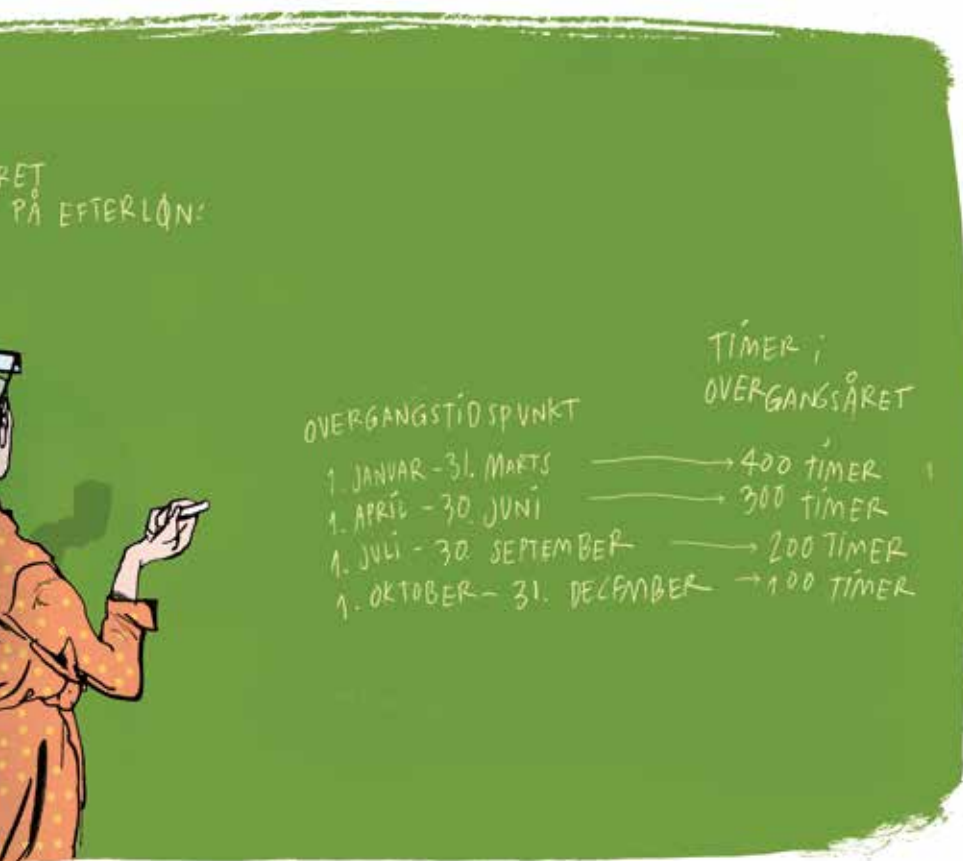 RET
PÅ EFTERLØN:
TIMER I
OVERGANGSÅRET
OVERGANGSTIDSPUNKT
1. JANUAR - 31. MARTS → 400 TIMER
1. APRIL - 30. JUNI → 300 TIMER
1. JULI - 30. SEPTEMBER → 200 TIMER
1. OKTOBER - 31. DECEMBER → 100 TIMER